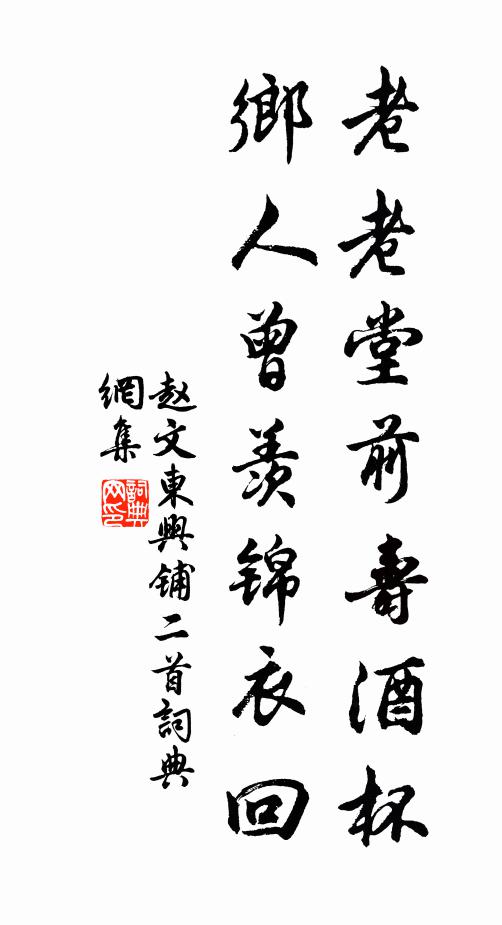 老老堂前壽酒杯
鄉人曾羨錦衣回
赵文東興铺二首詞典
網集
詞典
网印